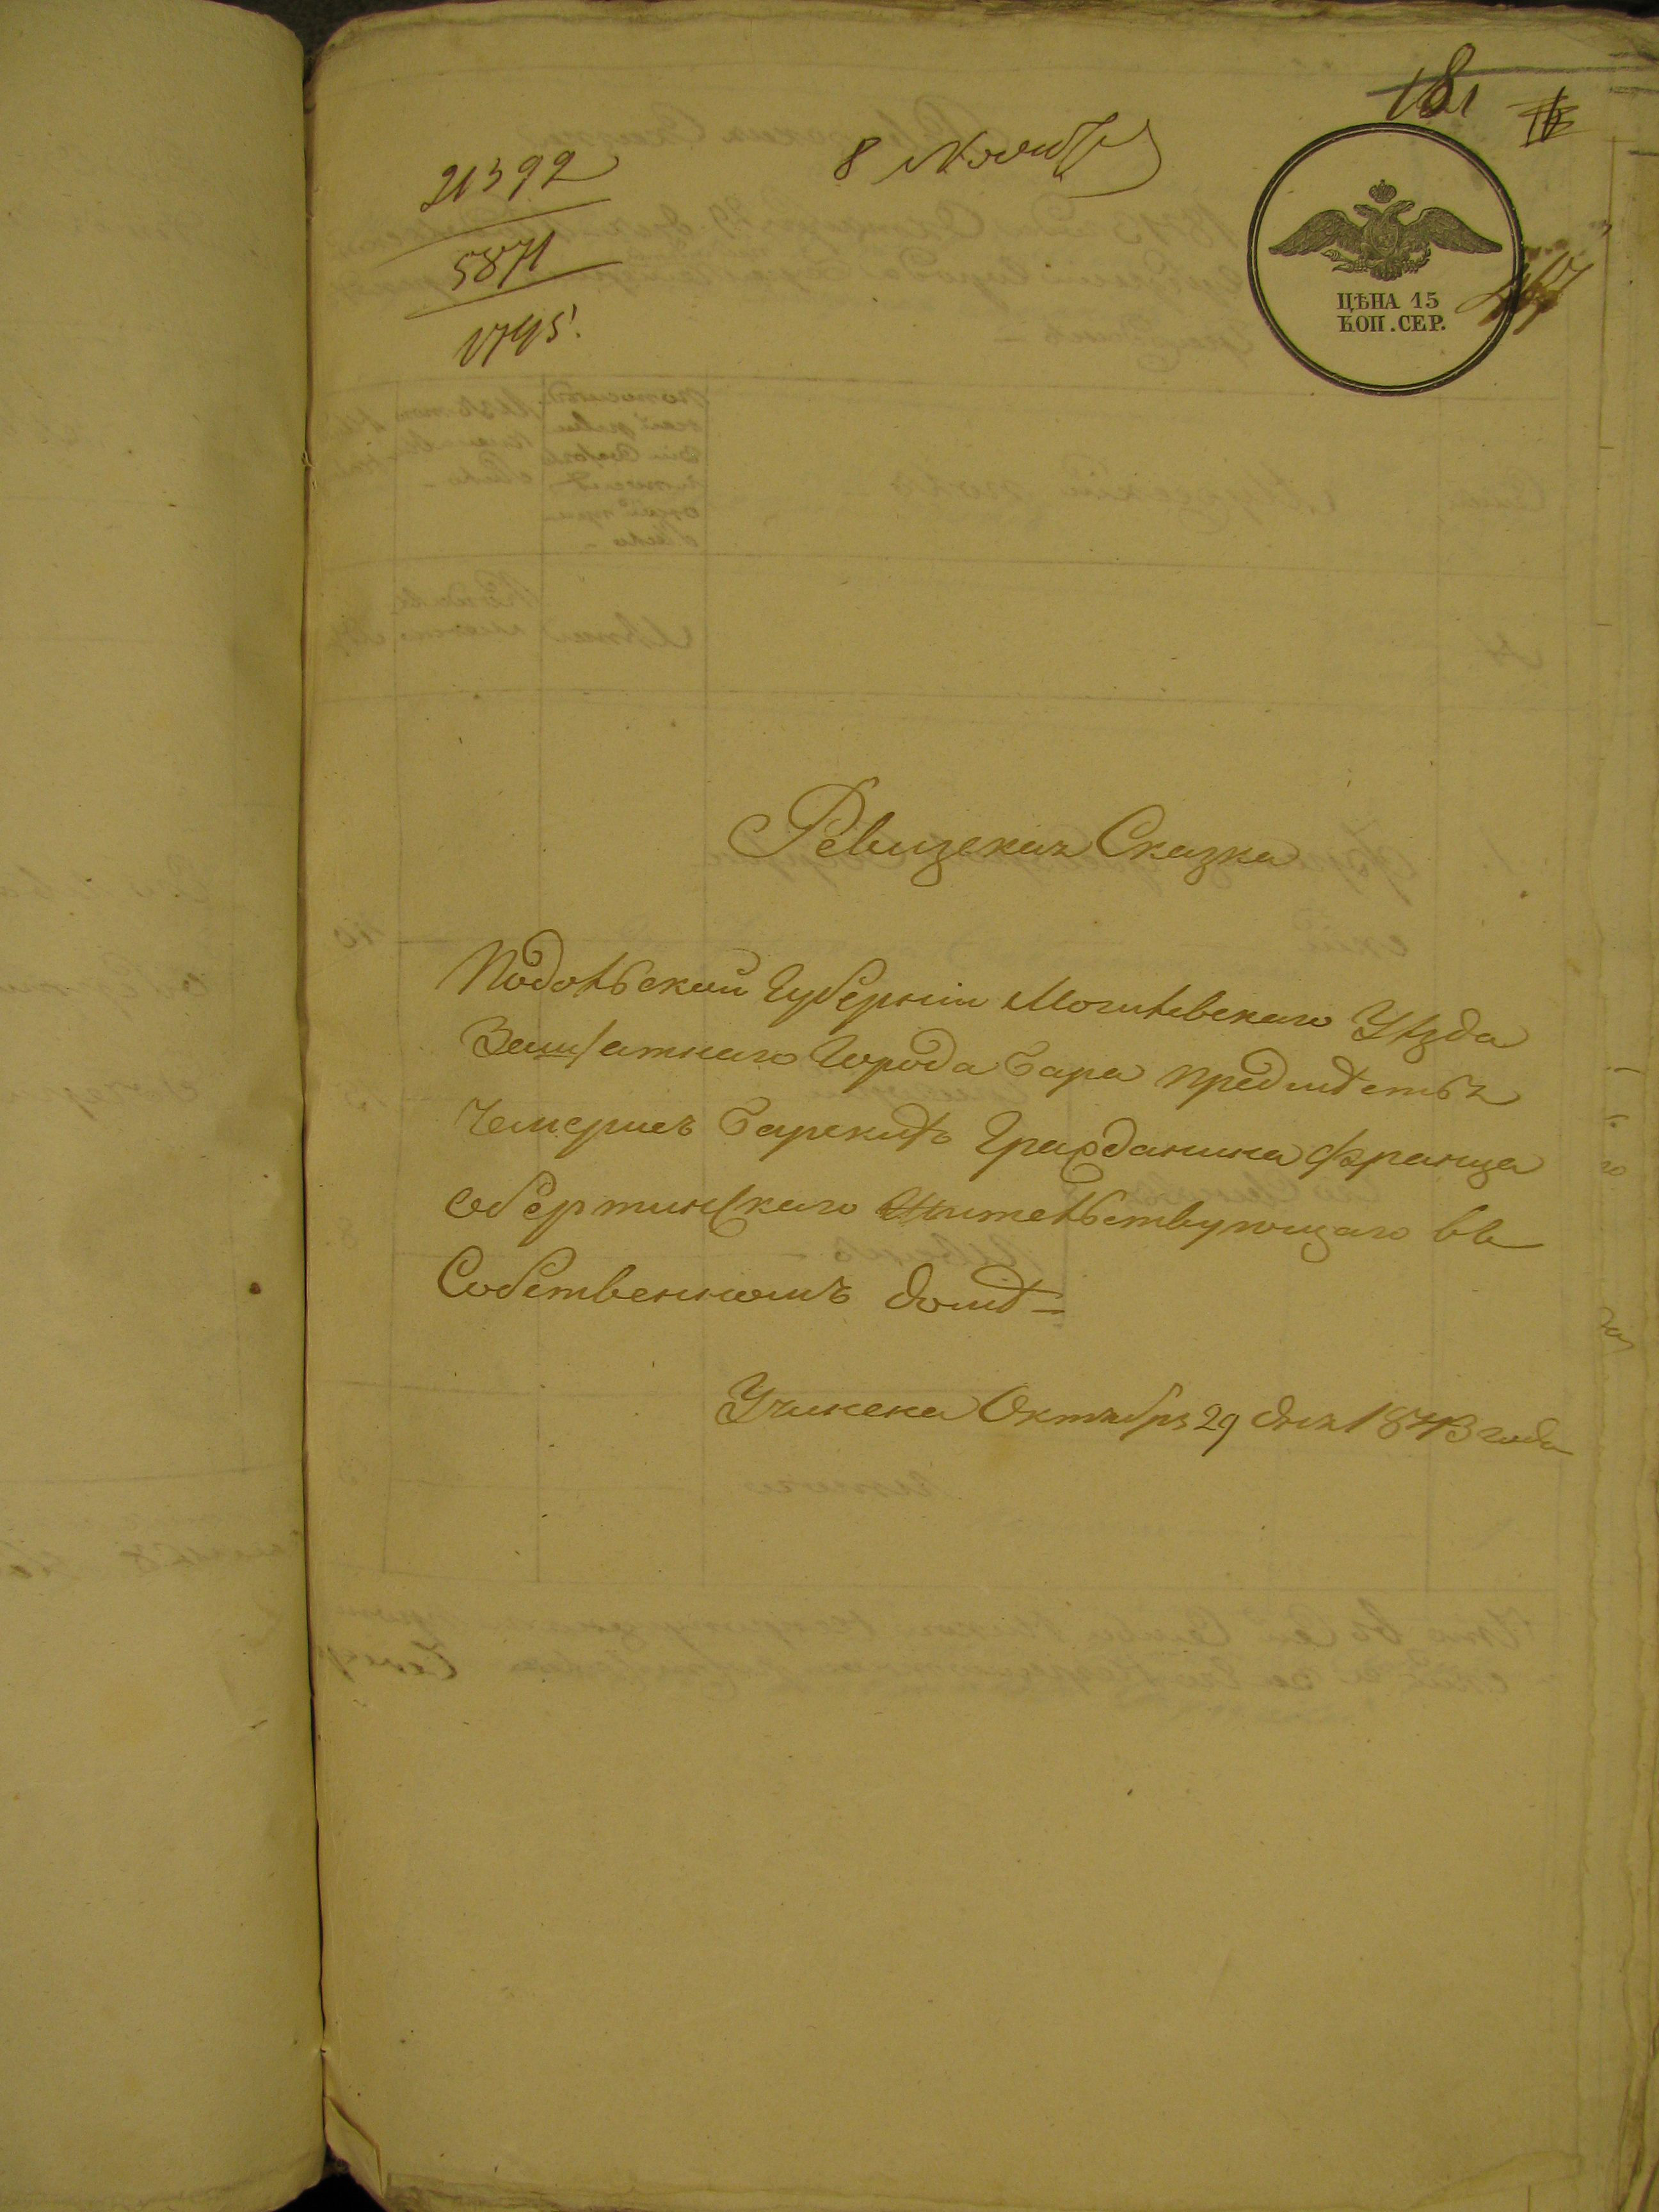 181
21392
8 Ноября
5871
1795.
ЦѢНА 15
КОП. СЕР.
Ревизская Сказка
Подольской Губерніи Могилевскаго Уѣзда
Заштатнаго Города Бара предмѣстья
Чемерисъ Барскихъ Гражданина Франца
Обертинскаго Жительствующаго въ
Собственномъ домѣ
Учинена Октября 29 дня 1843 года